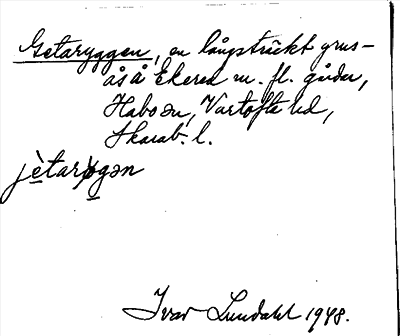 Getaryggen, en långsträckt grus-
ås å Ekered m. fl. gårdar,
Habo sn, Vartofta hd,
Skarab. l.
jètarỳgən
Ivar Lundahl 1948.